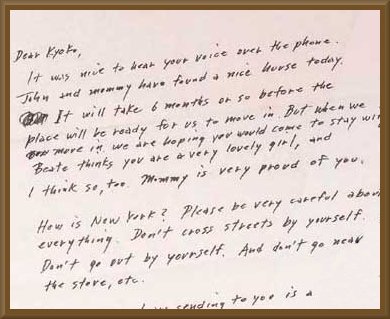 Dear Kyoko,
It was nice to hear your voice over the phone.
John and mommy have found a nice house today.
It will take 6 months or so before the
place will be ready for us to move in. But when we
move in we are hoping you would come to stay wi
Beate thinks you are a very lovely girl, and
I think so, too. Mommy is very proud of you.
How is New York? Please be very careful abou
everything. Don't cross streets by yourself.
Don't go out by yourself. And don't go near
the stove, etc.
sending to you is a